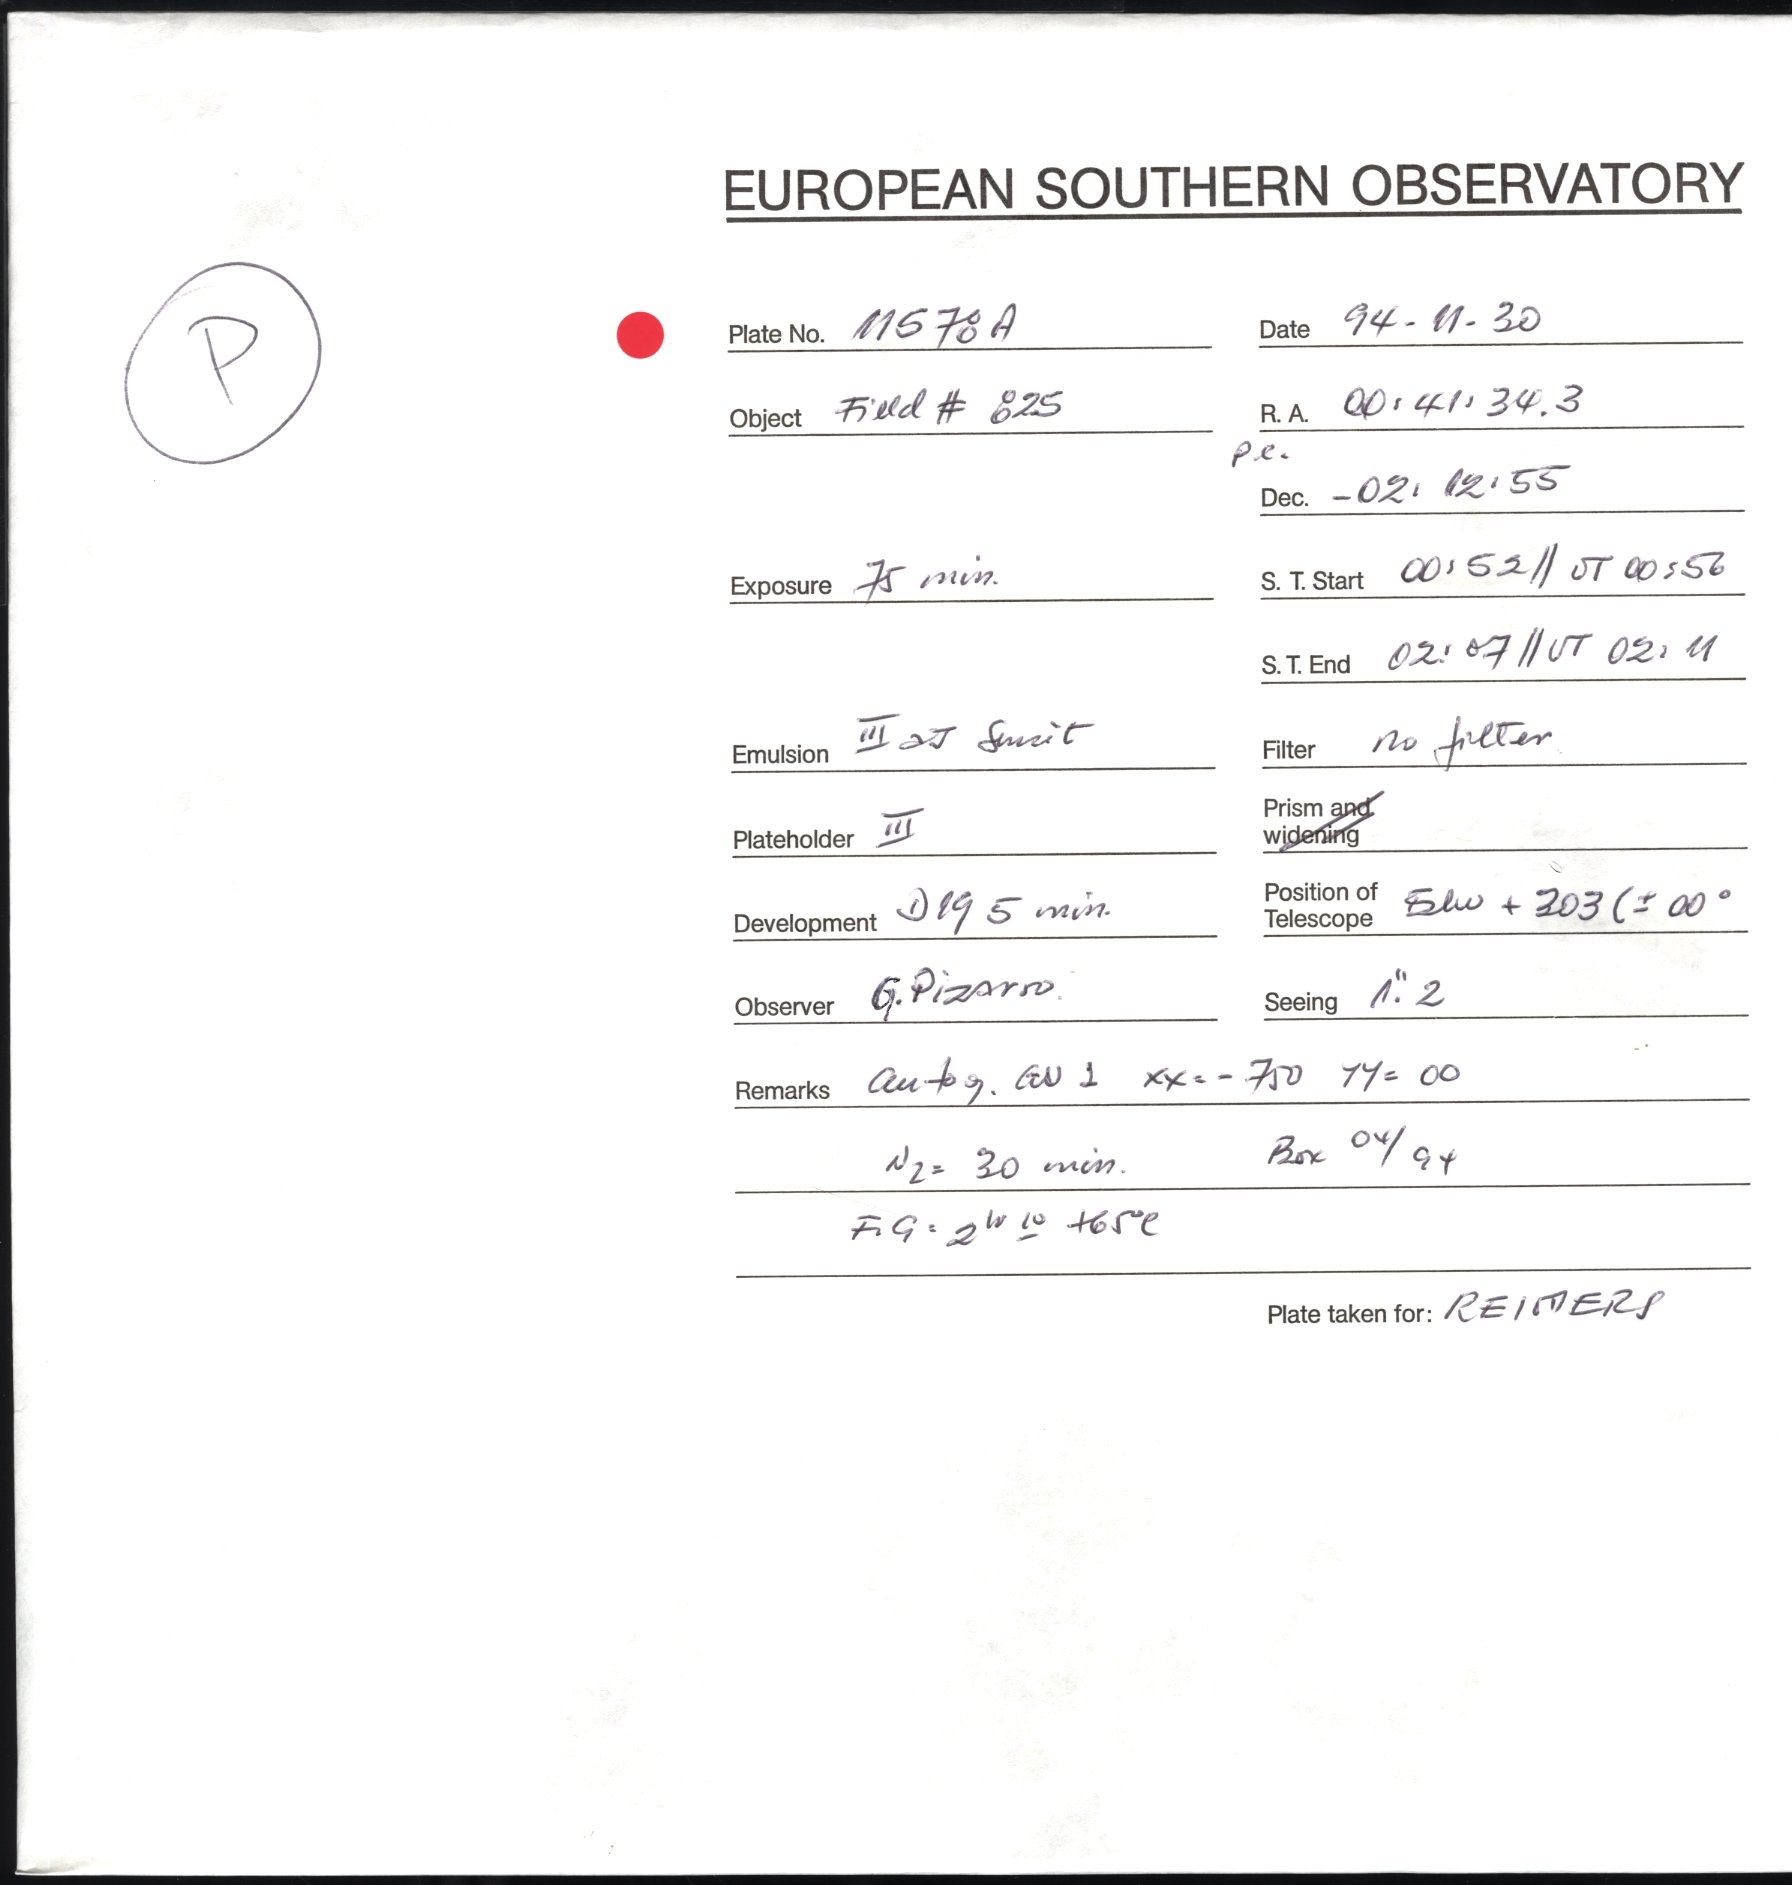 EUROPEAN SOUTHERN OBSERVATORY
P
Plate No. 11578A Date 94-11-30
Object Field # 825 R. A. 00:41:34.3
pe.
Dec. -02:12:55
Exposure 75 min. S. T. Start 00:52 // UT 00:56
S. T. End 02:07 // UT 02:11
Emulsion III aJ Filter no filter
Plateholder III Prism and
widening
Development D19 5 min. Position of
Telescope + 303 (± 00°
Observer G. Pizarro. Seeing 1".2
Remarks autog. xx=-750 YY=00
N2= 30 min. Box 04/94
+65°C
Plate taken for: REIMERS